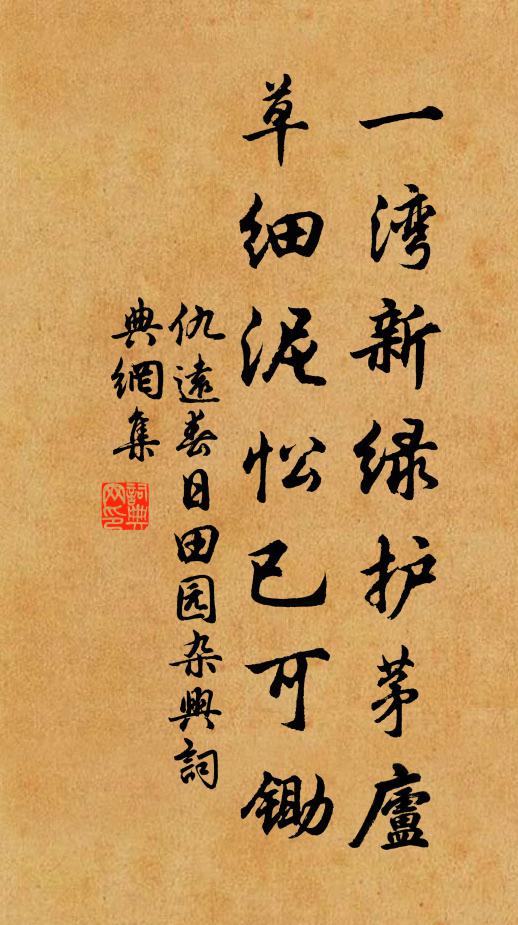 一湾新绿护茅廬
草细泥忪已可锄
仇遠春日田园杂興詞
典網集
詞典
网印